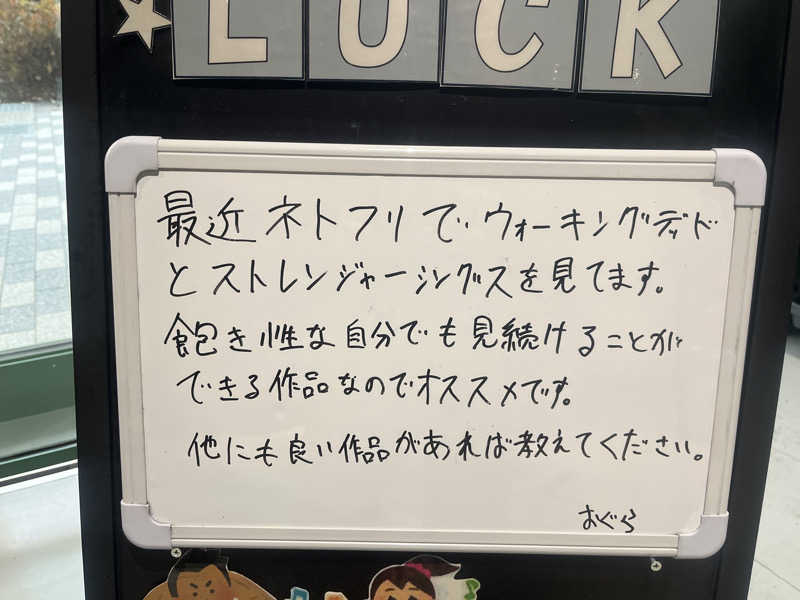 LUCK
最近ネトフリで ウォーキングデッド
とストレンジャーシングスを見てます。
飽き性な自分でも見続けることが
できる作品なのでオススメです。
他にも良い作品があれば教えてください。
おぐら